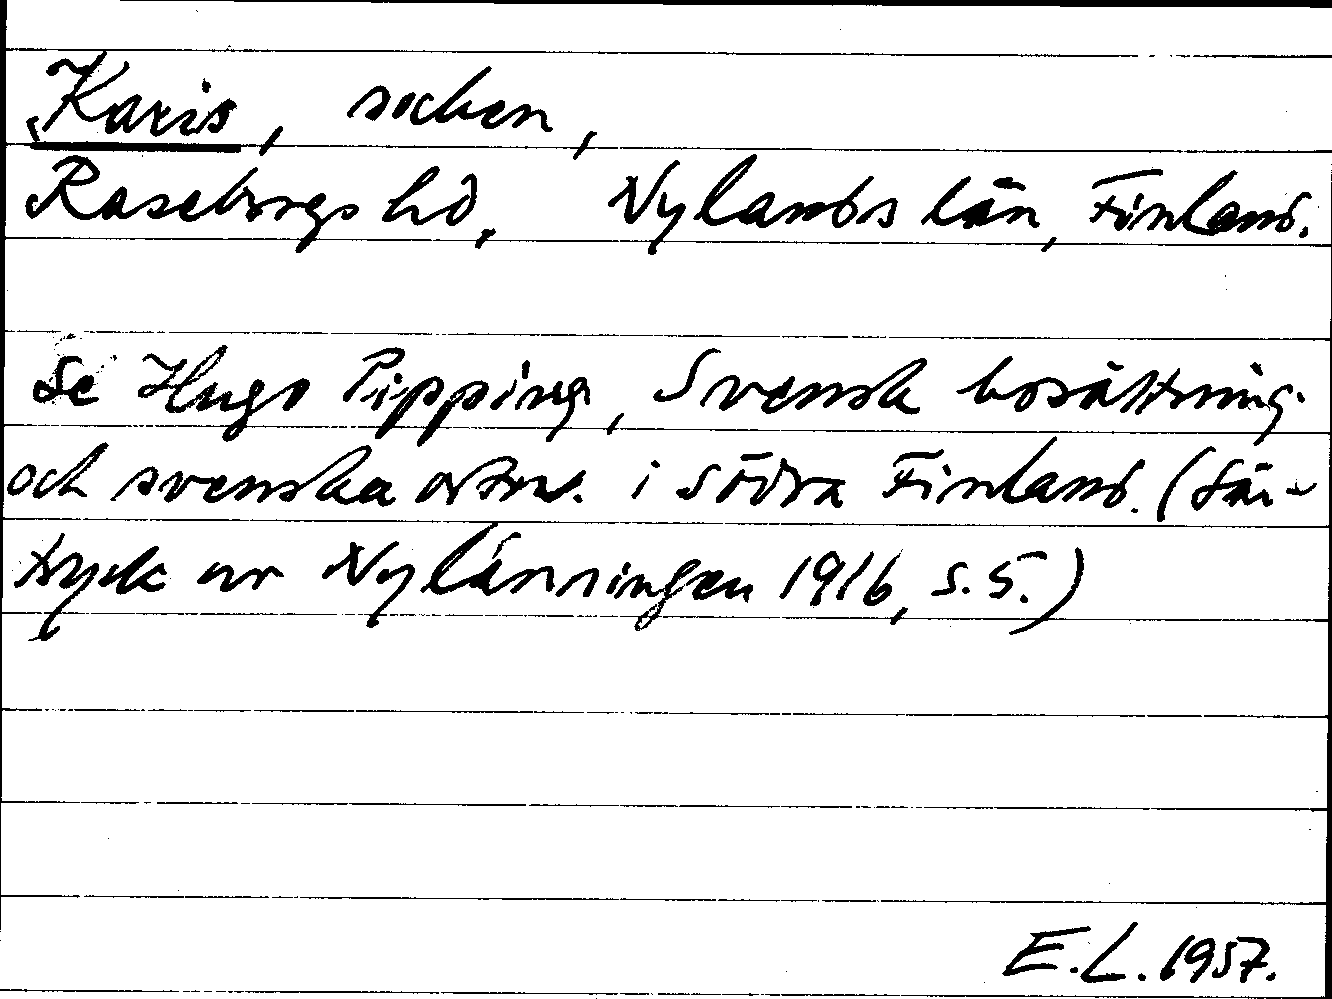 Karis, socken,
Raseborgs hd, Nylands län, Finland.
Se Hugo Pipping, Svensk bosättning
och svenska ortnn. i södra Finland. (Sär-
tryck ur Nylänningen 1916, s. 5.)
E.L. 1957.